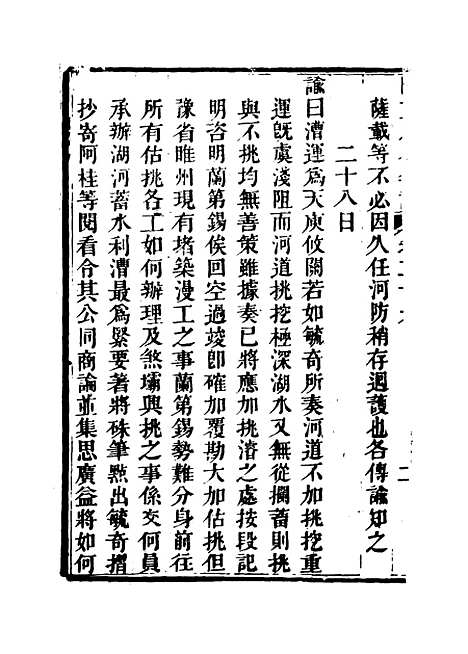 薩載等不必因久任河防稍存迴護也各傳諭知之
二十八日
諭曰漕運為天庾攸關若如毓奇所奏河道不加挑挖重
運旣虞淺阻而河道挑挖極深湖水又無從攔蓄則挑
與不挑均無善策雖據奏已將應加挑濬之處按段記
明咨明蘭第錫俟回空過竣卽確加覆勘大加估挑但
豫省睢州現有堵築漫工之事蘭第錫勢難分身前往
所有估挑各工如何辦理及煞壩興挑之事係交何員
承辦湖河蓄水利漕最為緊要著將硃筆㸃出毓奇摺
抄寄阿桂等閱看令其公同商論並集思廣益將如何